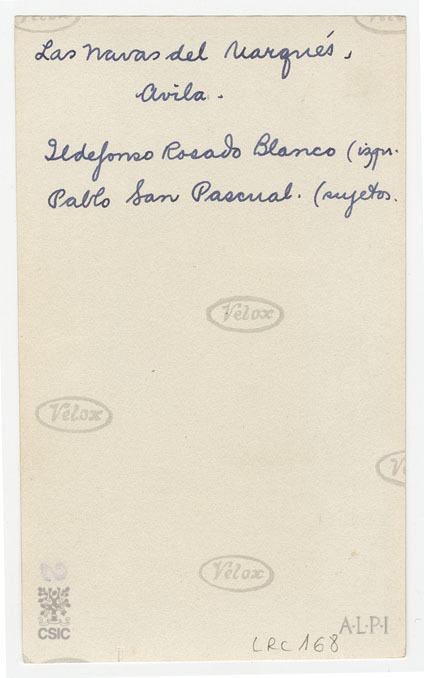 Las Navas del Marqués,
Avila.
Ildefonso Rosado Blanco (izqu.
Pablo San Pascual. (sujetos.
Velox
Velox
Ve
Velox
CSIC
A·L·P·I
LRC 168